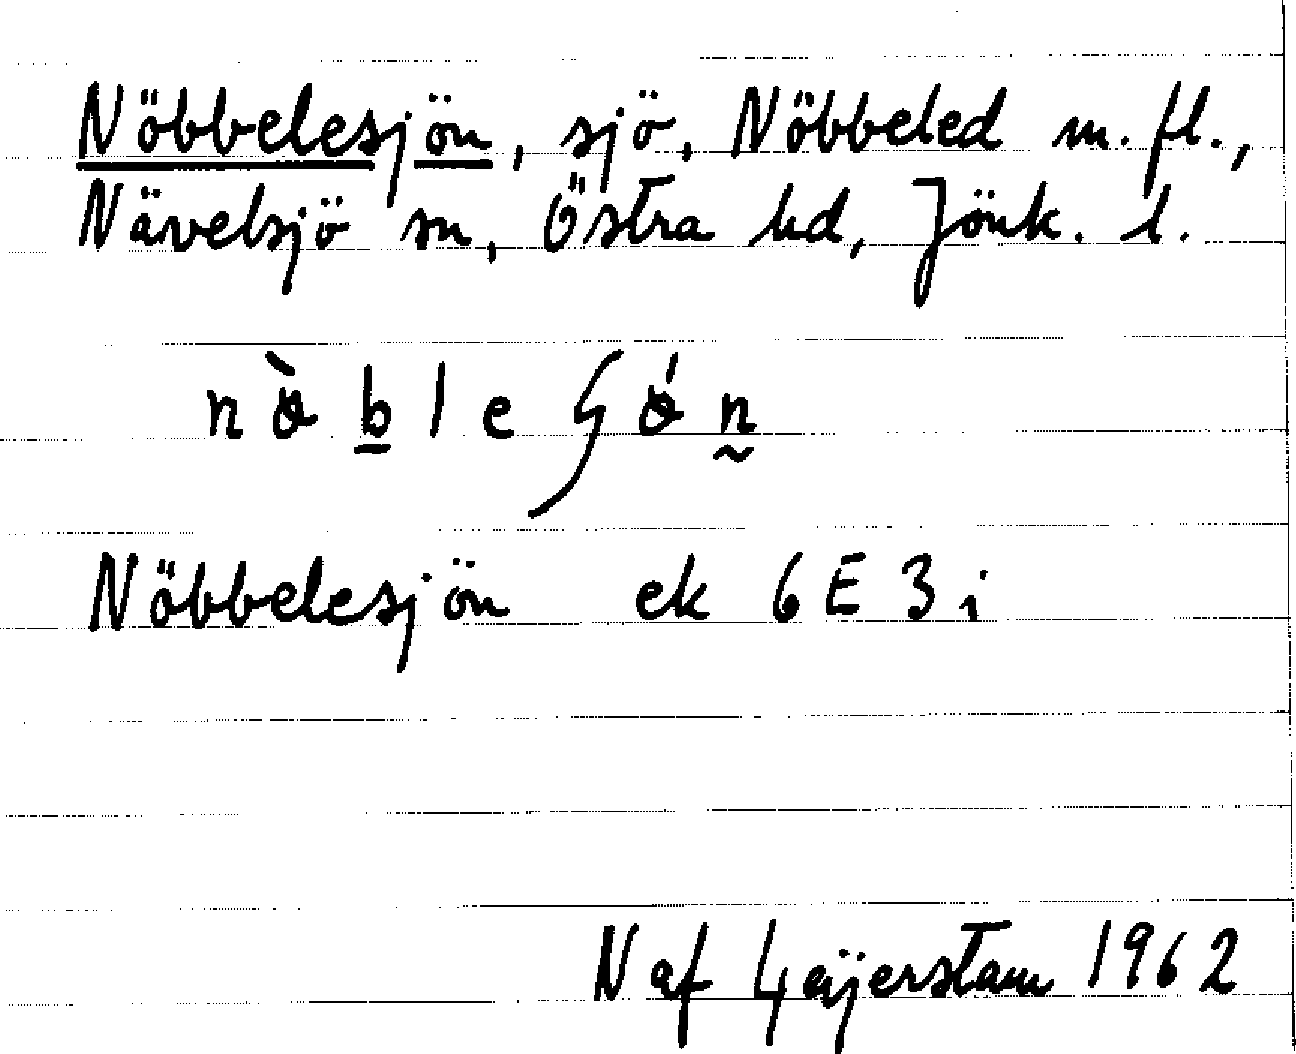 Nöbbelesjön, sjö, Nöbbeled m. fl.,
Nävelsjö sn, Östra hd, Jönk. l.
Nöbbelesjön ek 6E3i
N af Geijerstam 1962